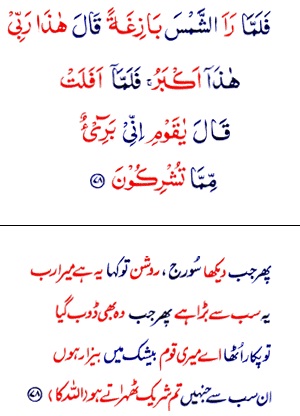 فَلَمَّا رَاَ الشَّمْسَ بَازِغَةً قَالَ هٰذَا رَبِّیْ
هٰذَاۤ اَکْبَرُ ۚ فَلَمَّاۤ اَفَلَتْ
قَالَ یٰقَوْمِ اِنِّیْ بَرِیْٓءٌ
مِّمَّا تُشْرِکُوْنَ ﴿۷۸﴾
پھر جب دیکھا سُورج ، روشن تو کہا یہ ہے میرا رب
یہ سب سے بڑا ہے پھر جب وہ بھی ڈوب گیا
تو پکار اُٹھا اے میری قوم بیشک میں بیزار ہوں
ان سب سے جنہیں تم شریک ٹھہراتے ہو (اللہ کا) ﴿۷۸﴾